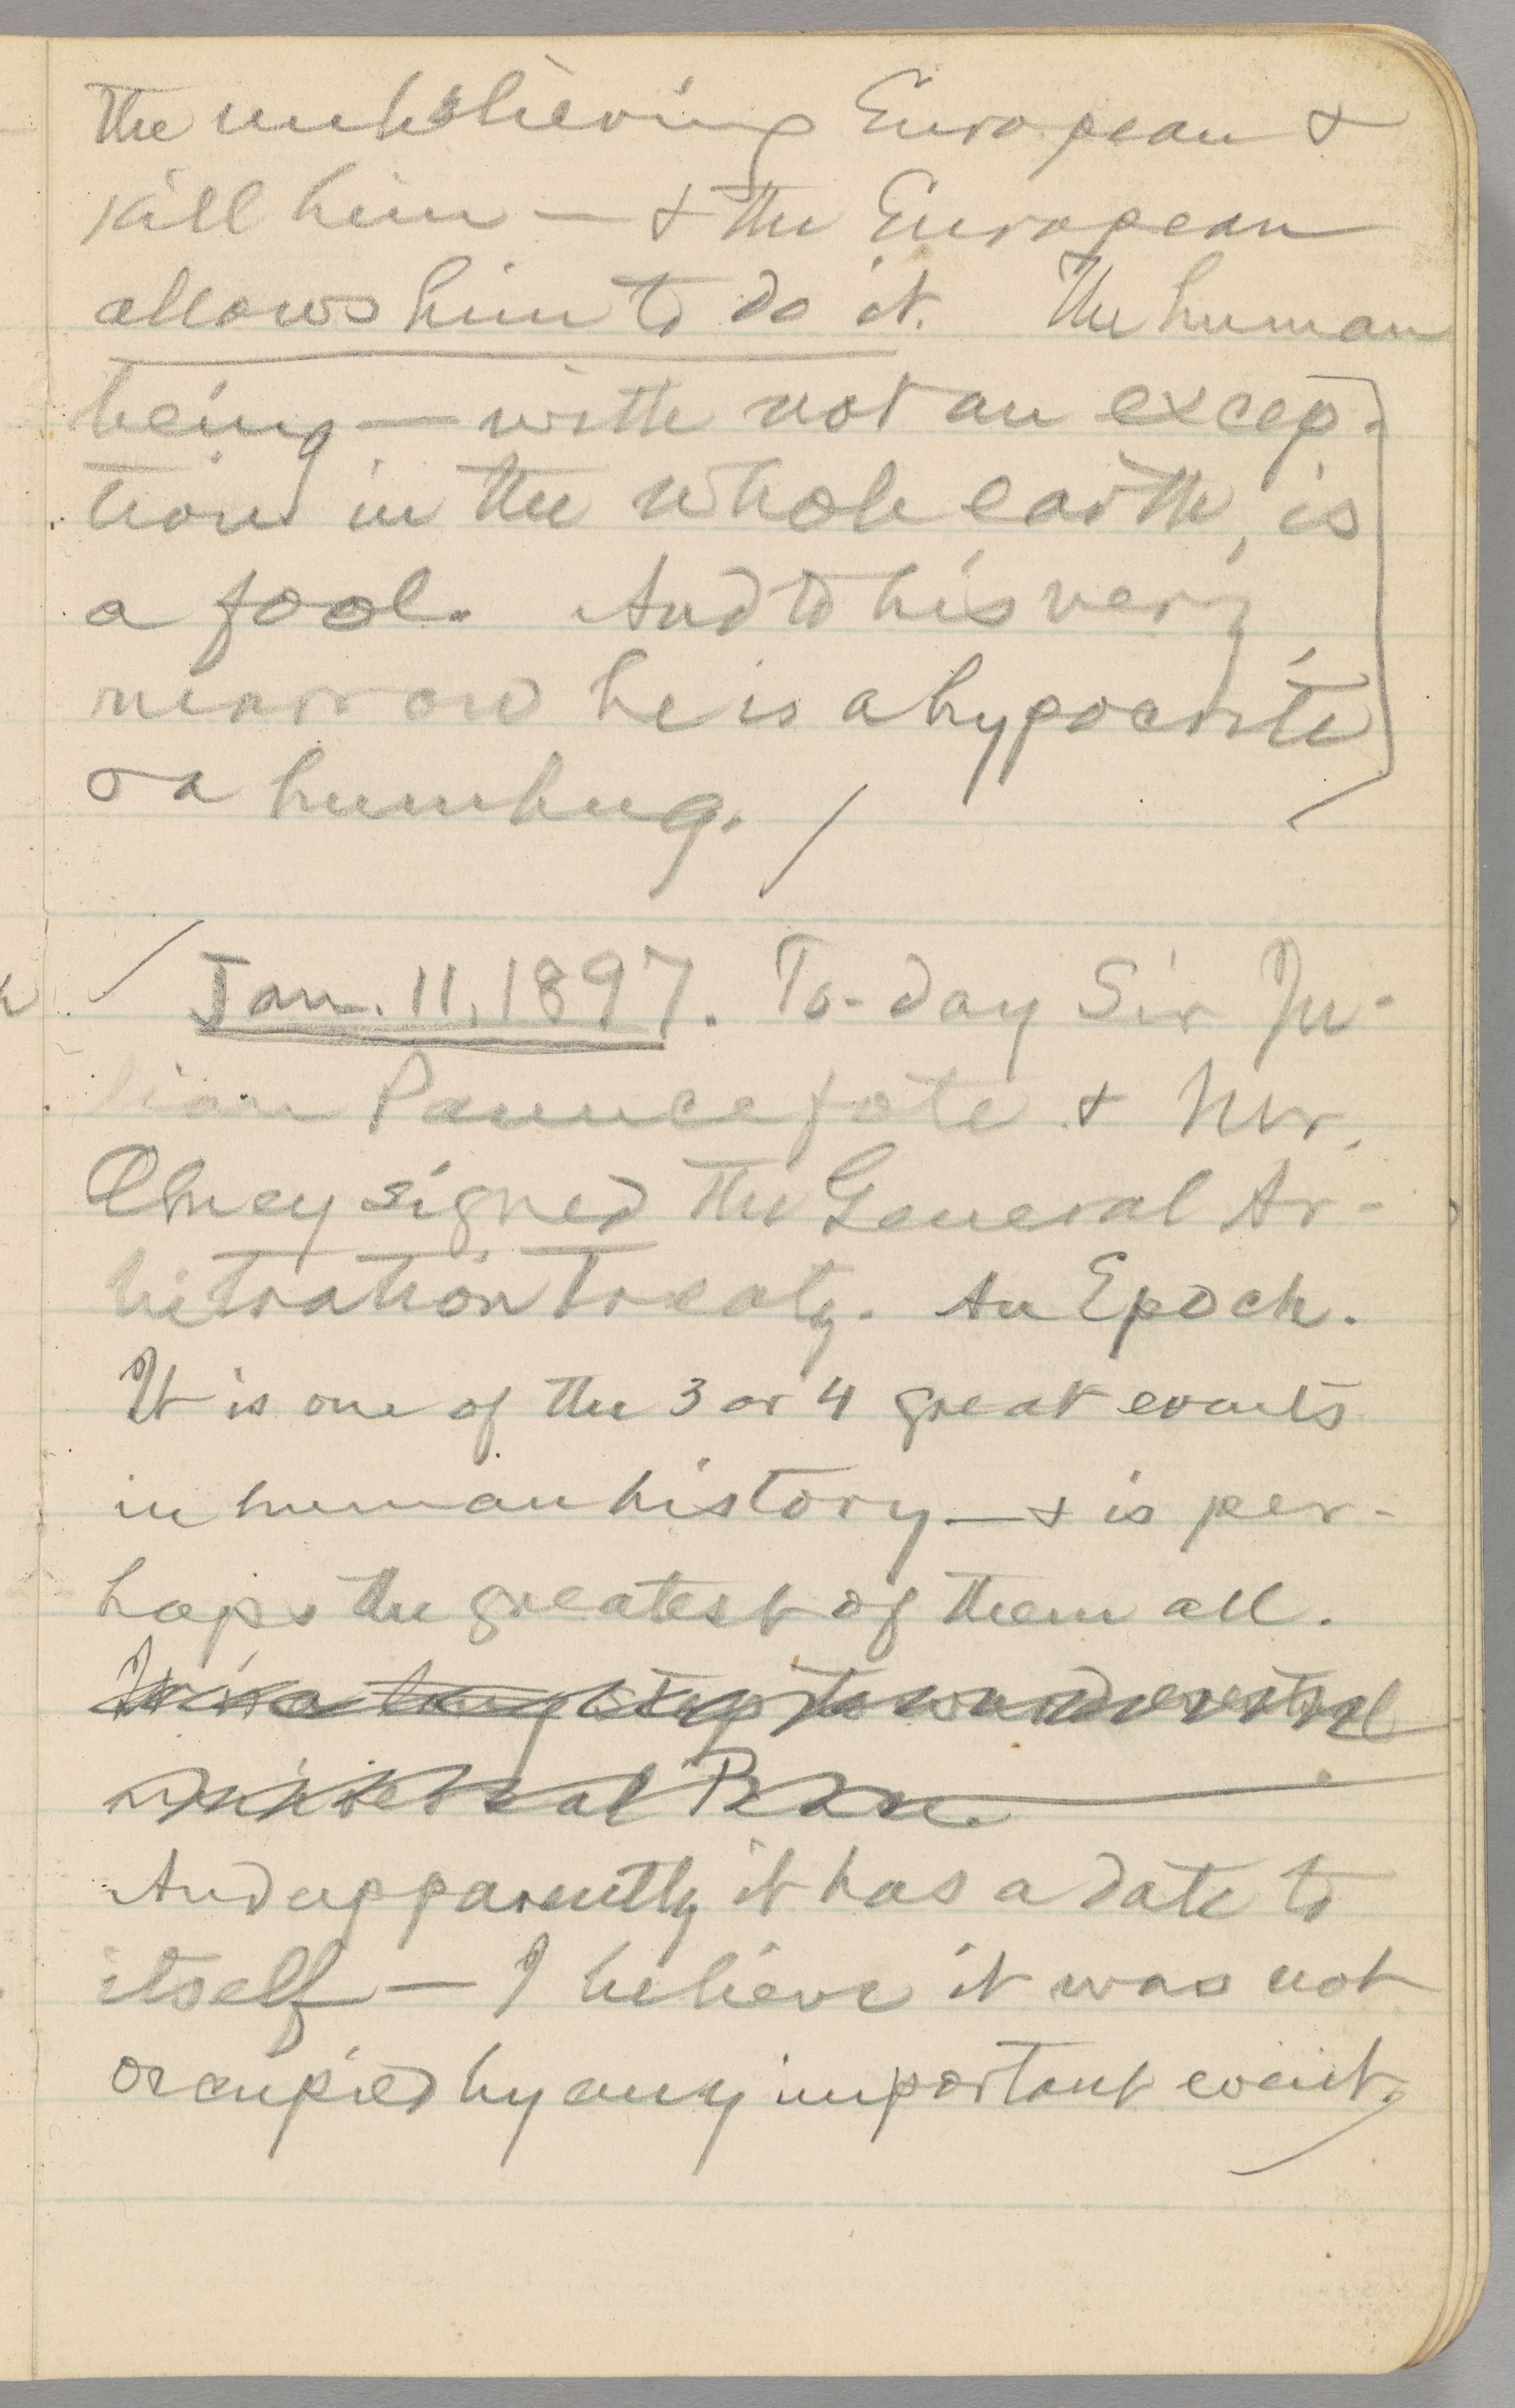 the unbelieving European &
kill him — & the European
allows him to do it. The human
being — with not an excep-
tion in the whole earth, is
a fool. And to his very
marrow he is a hypocrite
& a humbug. /
/ Jan. 11, 1897. To-day Sir Ju-
lian Pauncefote & Mr.
Olney signed the General Ar-
bitration Treaty. An Epoch.
It is one of the 3 or 4 great events
in human history — & is per-
haps the greatest of them all.
It is a long step toward
universal Peace.
And apparently it has a date to
itself — I believe it was not
occupied by any important event.